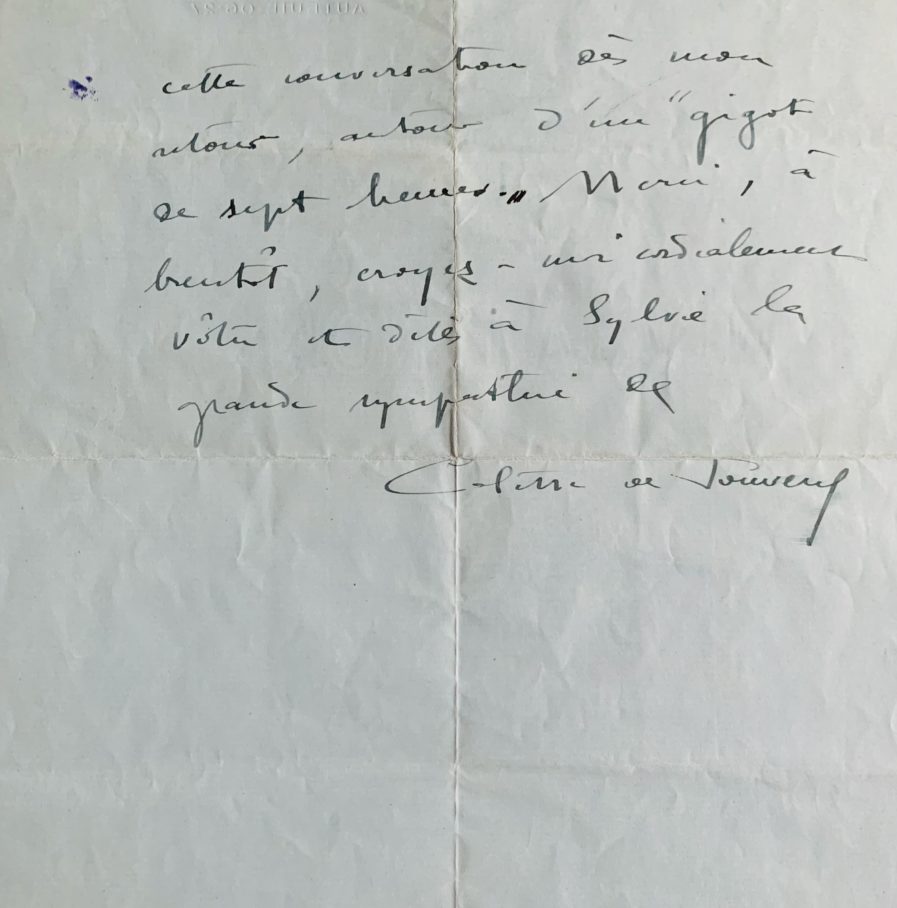 AUTEUIL 06-27
cette conversation dès mon
retour, autour d'un "gigot
de sept heures." Merci, à
bientôt, croyez-moi cordialement
vôtre et dites à Sylvie la
grande sympathie de
Colette de Jouvenel